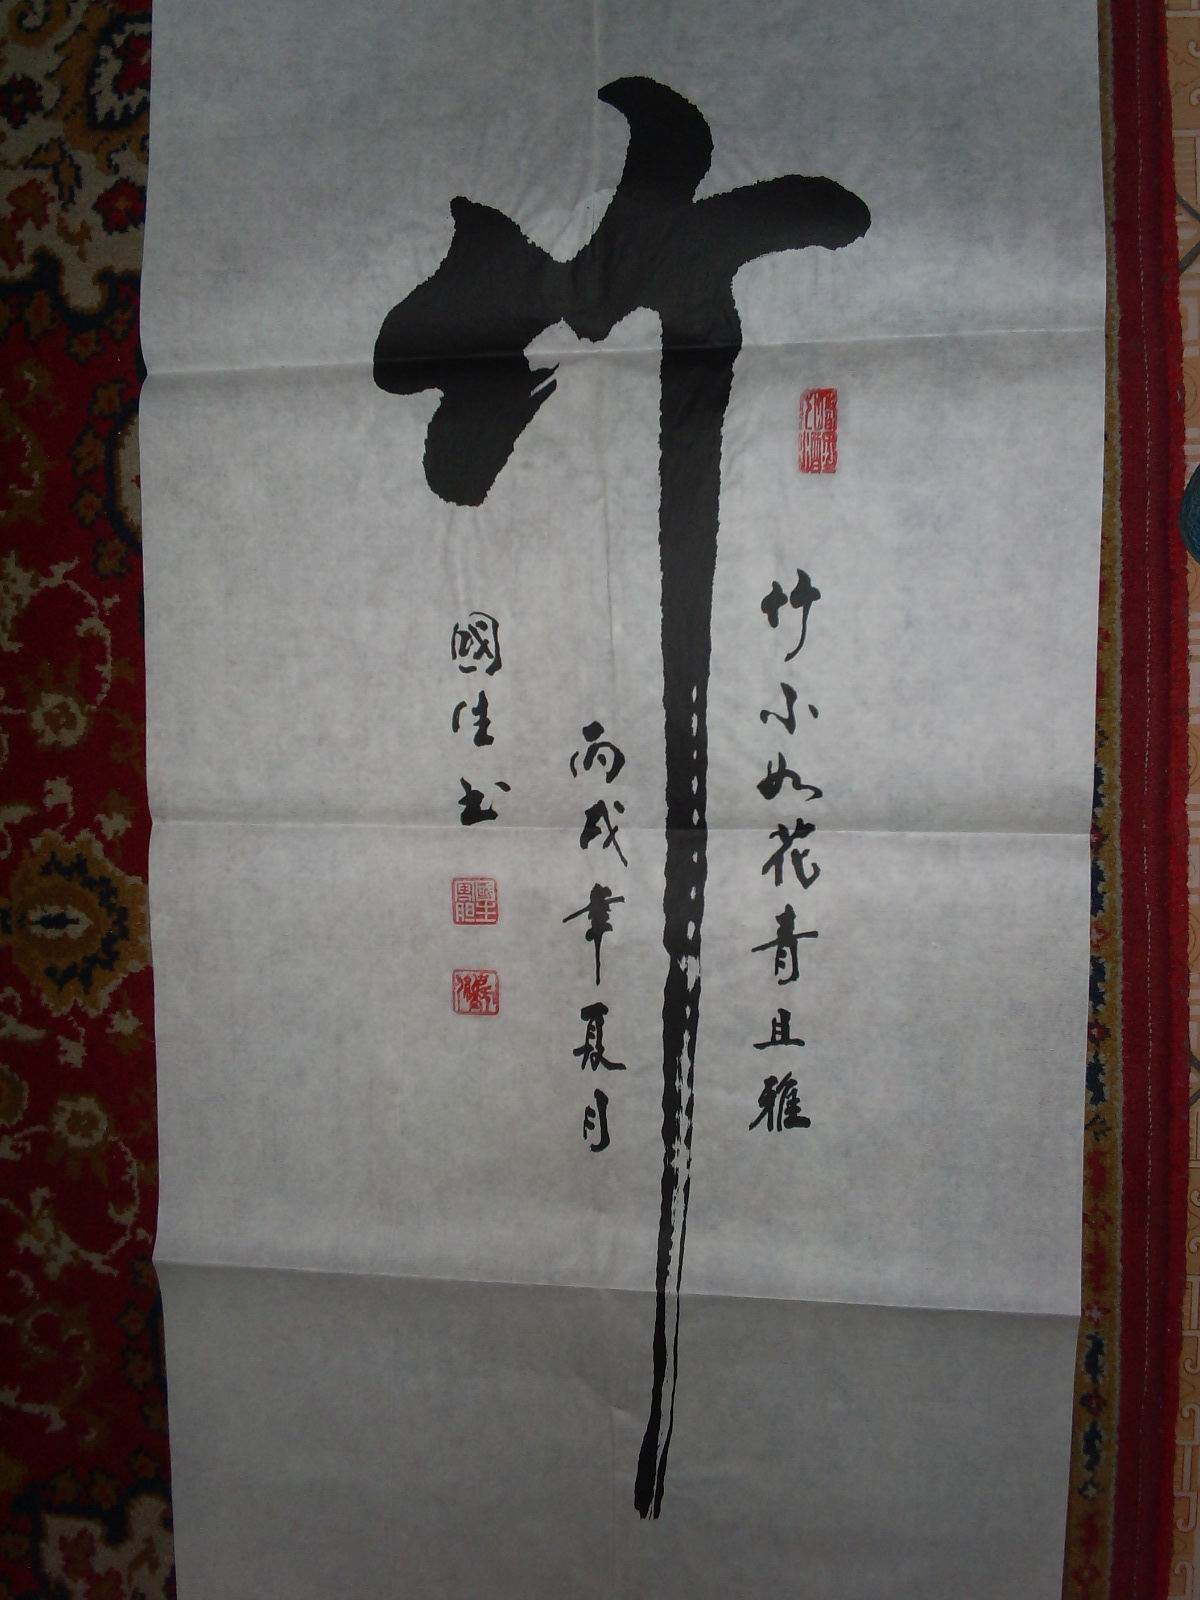 竹
竹小如花青且雅
丙戌年夏月
國佳书